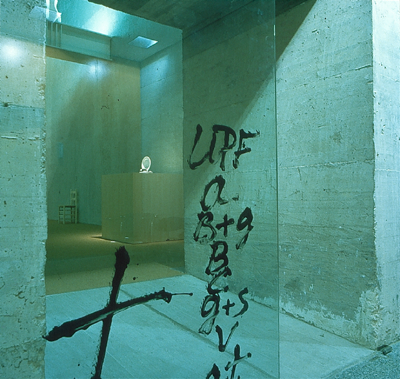 UPF
a
B+g
B
g+s
V